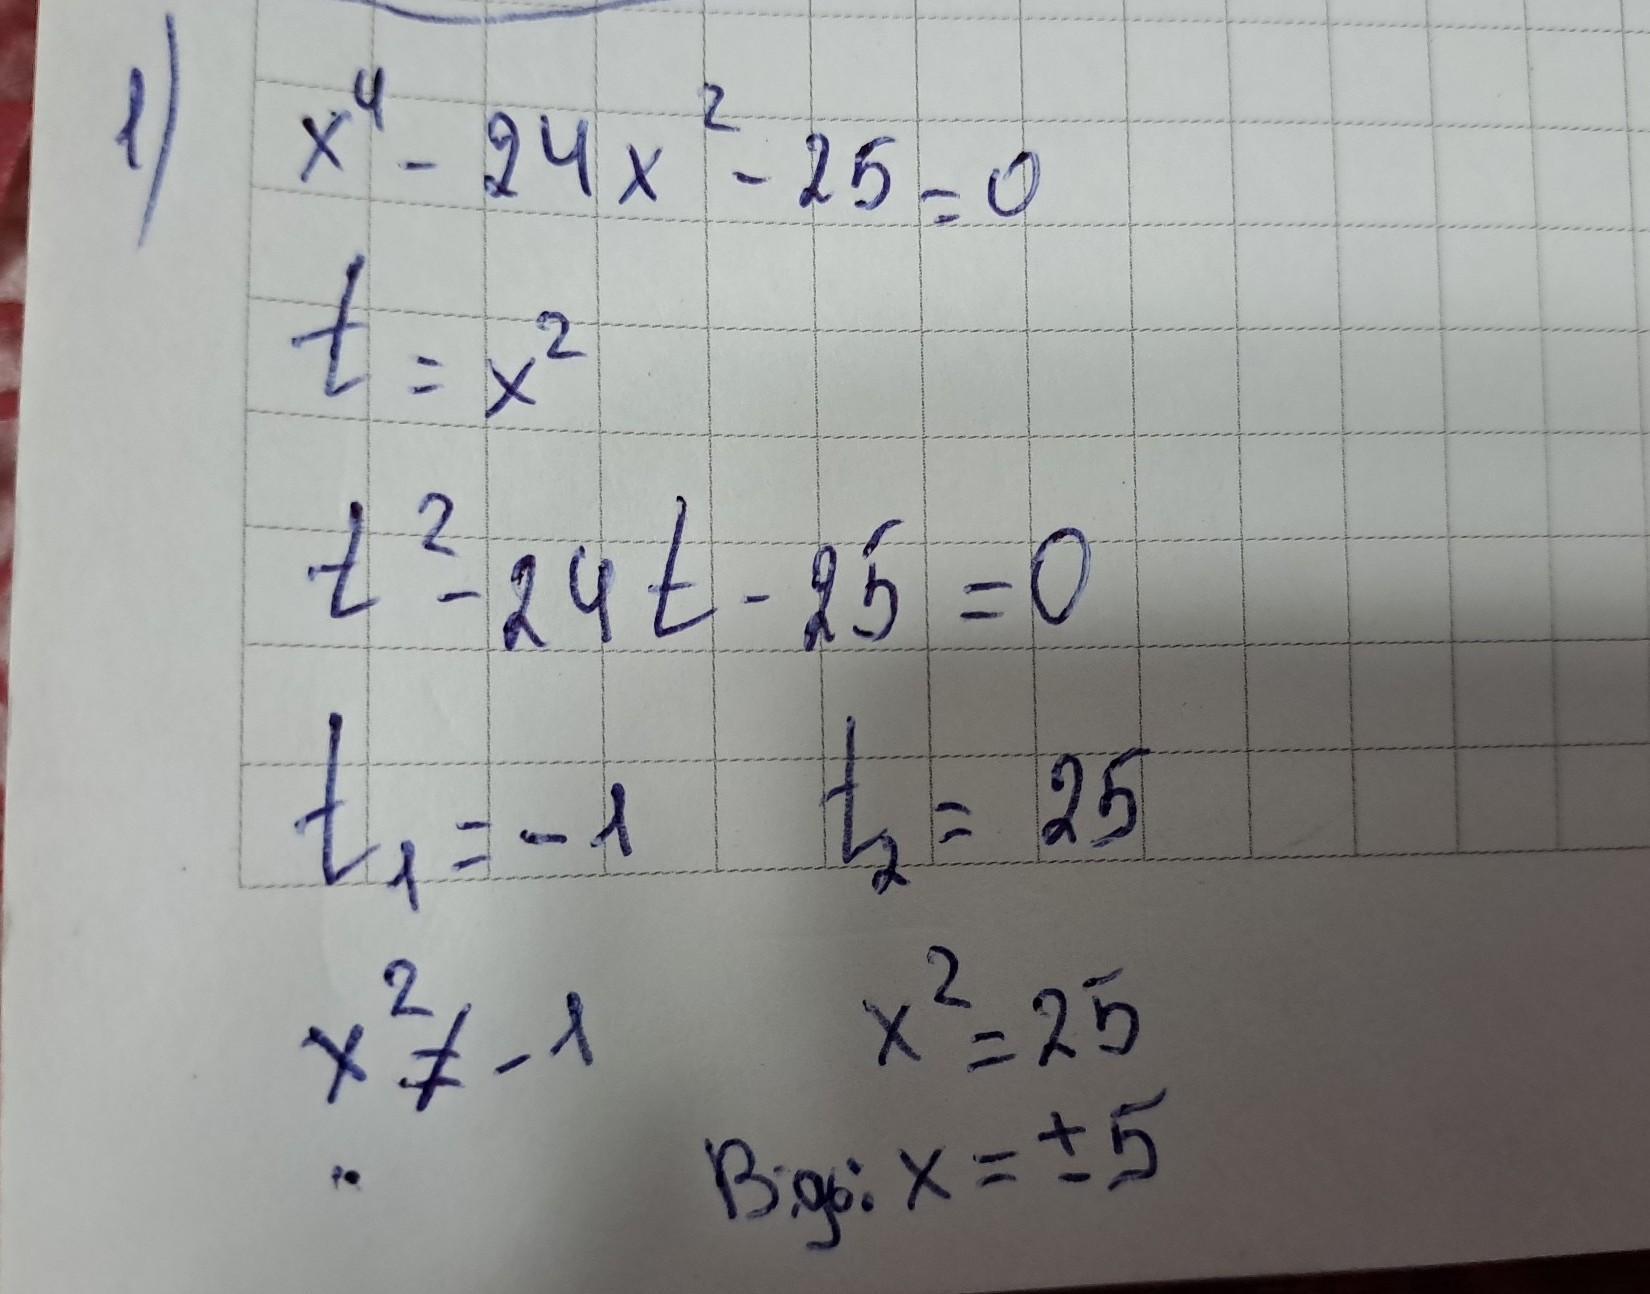 1) x⁴ - 24x² - 25 = 0
t = x²
t² - 24t - 25 = 0
t₁ = -1 t₂ = 25
x² ≠ -1 x² = 25
Відь: x = ±5